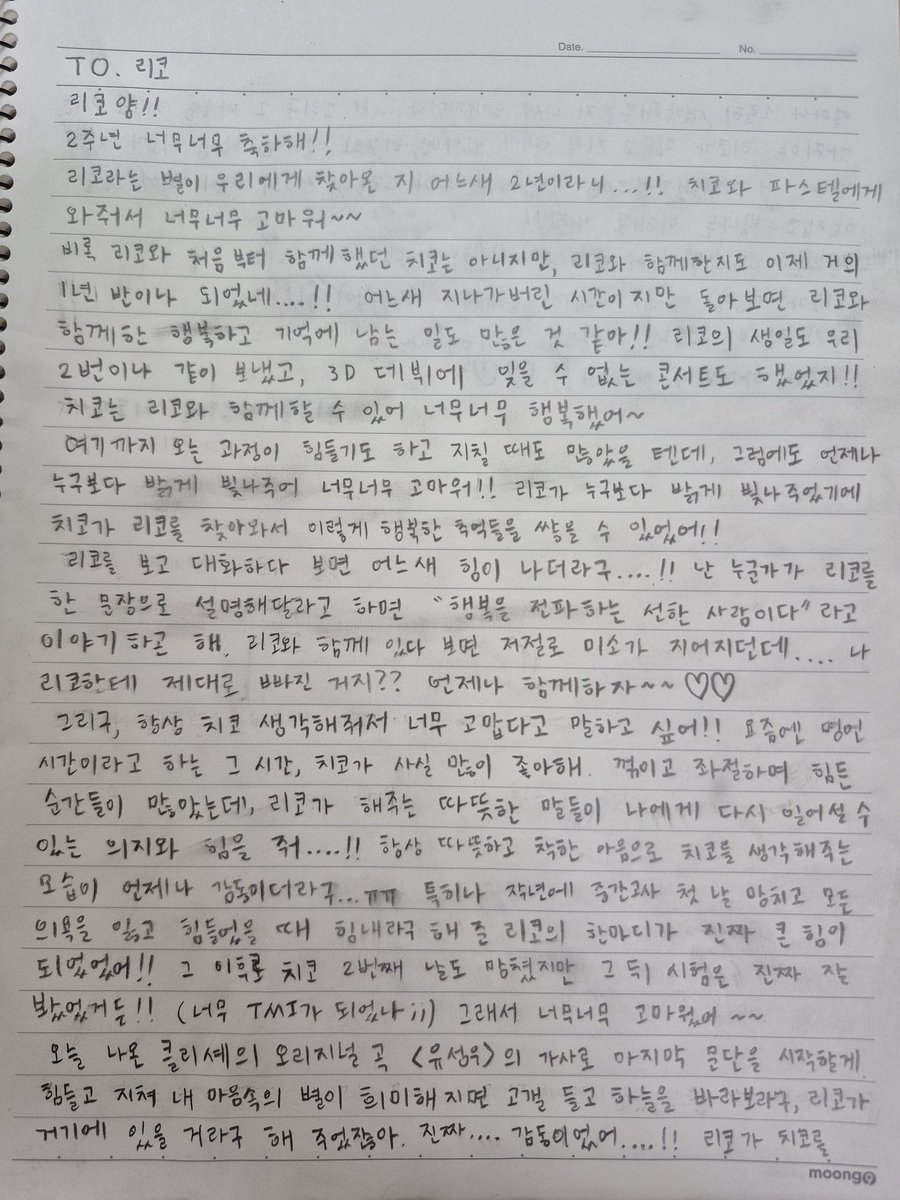 Date.
No.
TO. 리코
리코양!!
2주년 너무너무 축하해!!
리코라는 별이 우리에게 찾아온 지 어느새 2년이라니...!! 치코와 파스텔에게
와줘서 너무너무 고마워~~
비록 리코와 처음부터 함께했던 치코는 아니지만, 리코와 함께한지도 이제 거의
1년 반이나 되었네....!! 어느새 지나가버린 시간이지만 돌아보면 리코와
함께한 행복하고 기억에 남는 일도 많은 것 같아!! 리코의 생일도 우리
2번이나 같이 보냈고, 3D 데뷔에 잊을 수 없는 콘서트도 했었지!!
치코는 리코와 함께할 수 있어 너무너무 행복했어~
여기까지 오는 과정이 힘들기도 하고 지칠 때도 많았을 텐데, 그럼에도 언제나
누구보다 밝게 빛나주어 너무너무 고마워!! 리코가 누구보다 밝게 빛나주었기에
치코가 리코를 찾아와서 이렇게 행복한 추억들을 쌓을 수 있었어!!
리코를 보고 대화하다 보면 어느새 힘이 나더라구....!! 난 누군가가 리코를
한 문장으로 설명해달라고 하면 "행복을 전파하는 선한 사람이다"라고
이야기하곤 해. 리코와 함께 있다 보면 저절로 미소가 지어지던데.... 나
리코한테 제대로 빠진 거지?? 언제나 함께하자~~♡♡
그리구, 항상 치코 생각해줘서 너무 고맙다고 말하고 싶어!! 요즘엔 명언
시간이라고 하는 그 시간, 치코가 사실 많이 좋아해. 꺾이고 좌절하며 힘든
순간들이 많았는데, 리코가 해주는 따뜻한 말들이 나에게 다시 일어설 수
있는 의지와 힘을 줘....!! 항상 따뜻하고 착한 마음으로 치코를 생각해주는
모습이 언제나 감동이더라구...ㅠㅠ 특히나 작년에 중간고사 첫 날 망치고 모든
의욕을 잃고 힘들었을 때 힘내라구 해 준 리코의 한마디가 진짜 큰 힘이
되었었어!! 그 이후로 치코 2번째 날도 망쳤지만 그 뒤 시험은 진짜 잘
봤었거든!! (너무 TMI가 되었나;;) 그래서 너무너무 고마웠어~~
오늘 나온 클리셰의 오리지널 곡 <유성우>의 가사로 마지막 문단을 시작할게.
힘들고 지쳐 내 마음속의 별이 희미해지면 고갤 들고 하늘을 바라보라구, 리코가
거기에 있을 거라구 해 주었잖아. 진짜.... 감동이었어....!! 리코가 치코를
moong